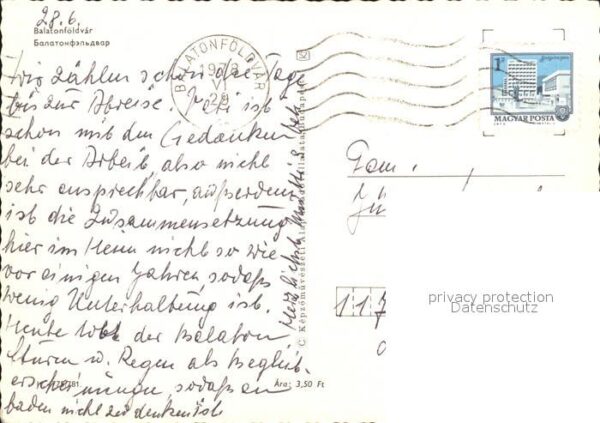 28.6.
Balatonföldvár
Балатонфэльдвар
Wir zählen schon die Tage
bis zur Abreise. Peti ist
schon mit den Gedanken
bei der Arbeit, also nicht
sehr ansprechbar, außerdem
ist die Zusammensetzung
hier im Heim nicht so wie
vor einigen Jahren, sodaß
wenig Unterhaltung ist.
Heute tobt der Balaton
Sturm u. Regen als Begleit-
erscheinungen sodaß an
baden nicht zu denken ist
Herzlichste
BALATONFÖLDVÁR
VI
29
C Képzőművészeti Alap Kiadóvállalata, Budapest
Ára: 3,50 Ft
1 Ft
MAGYAR POSTA
Fam.
117
privacy protection
Datenschutz